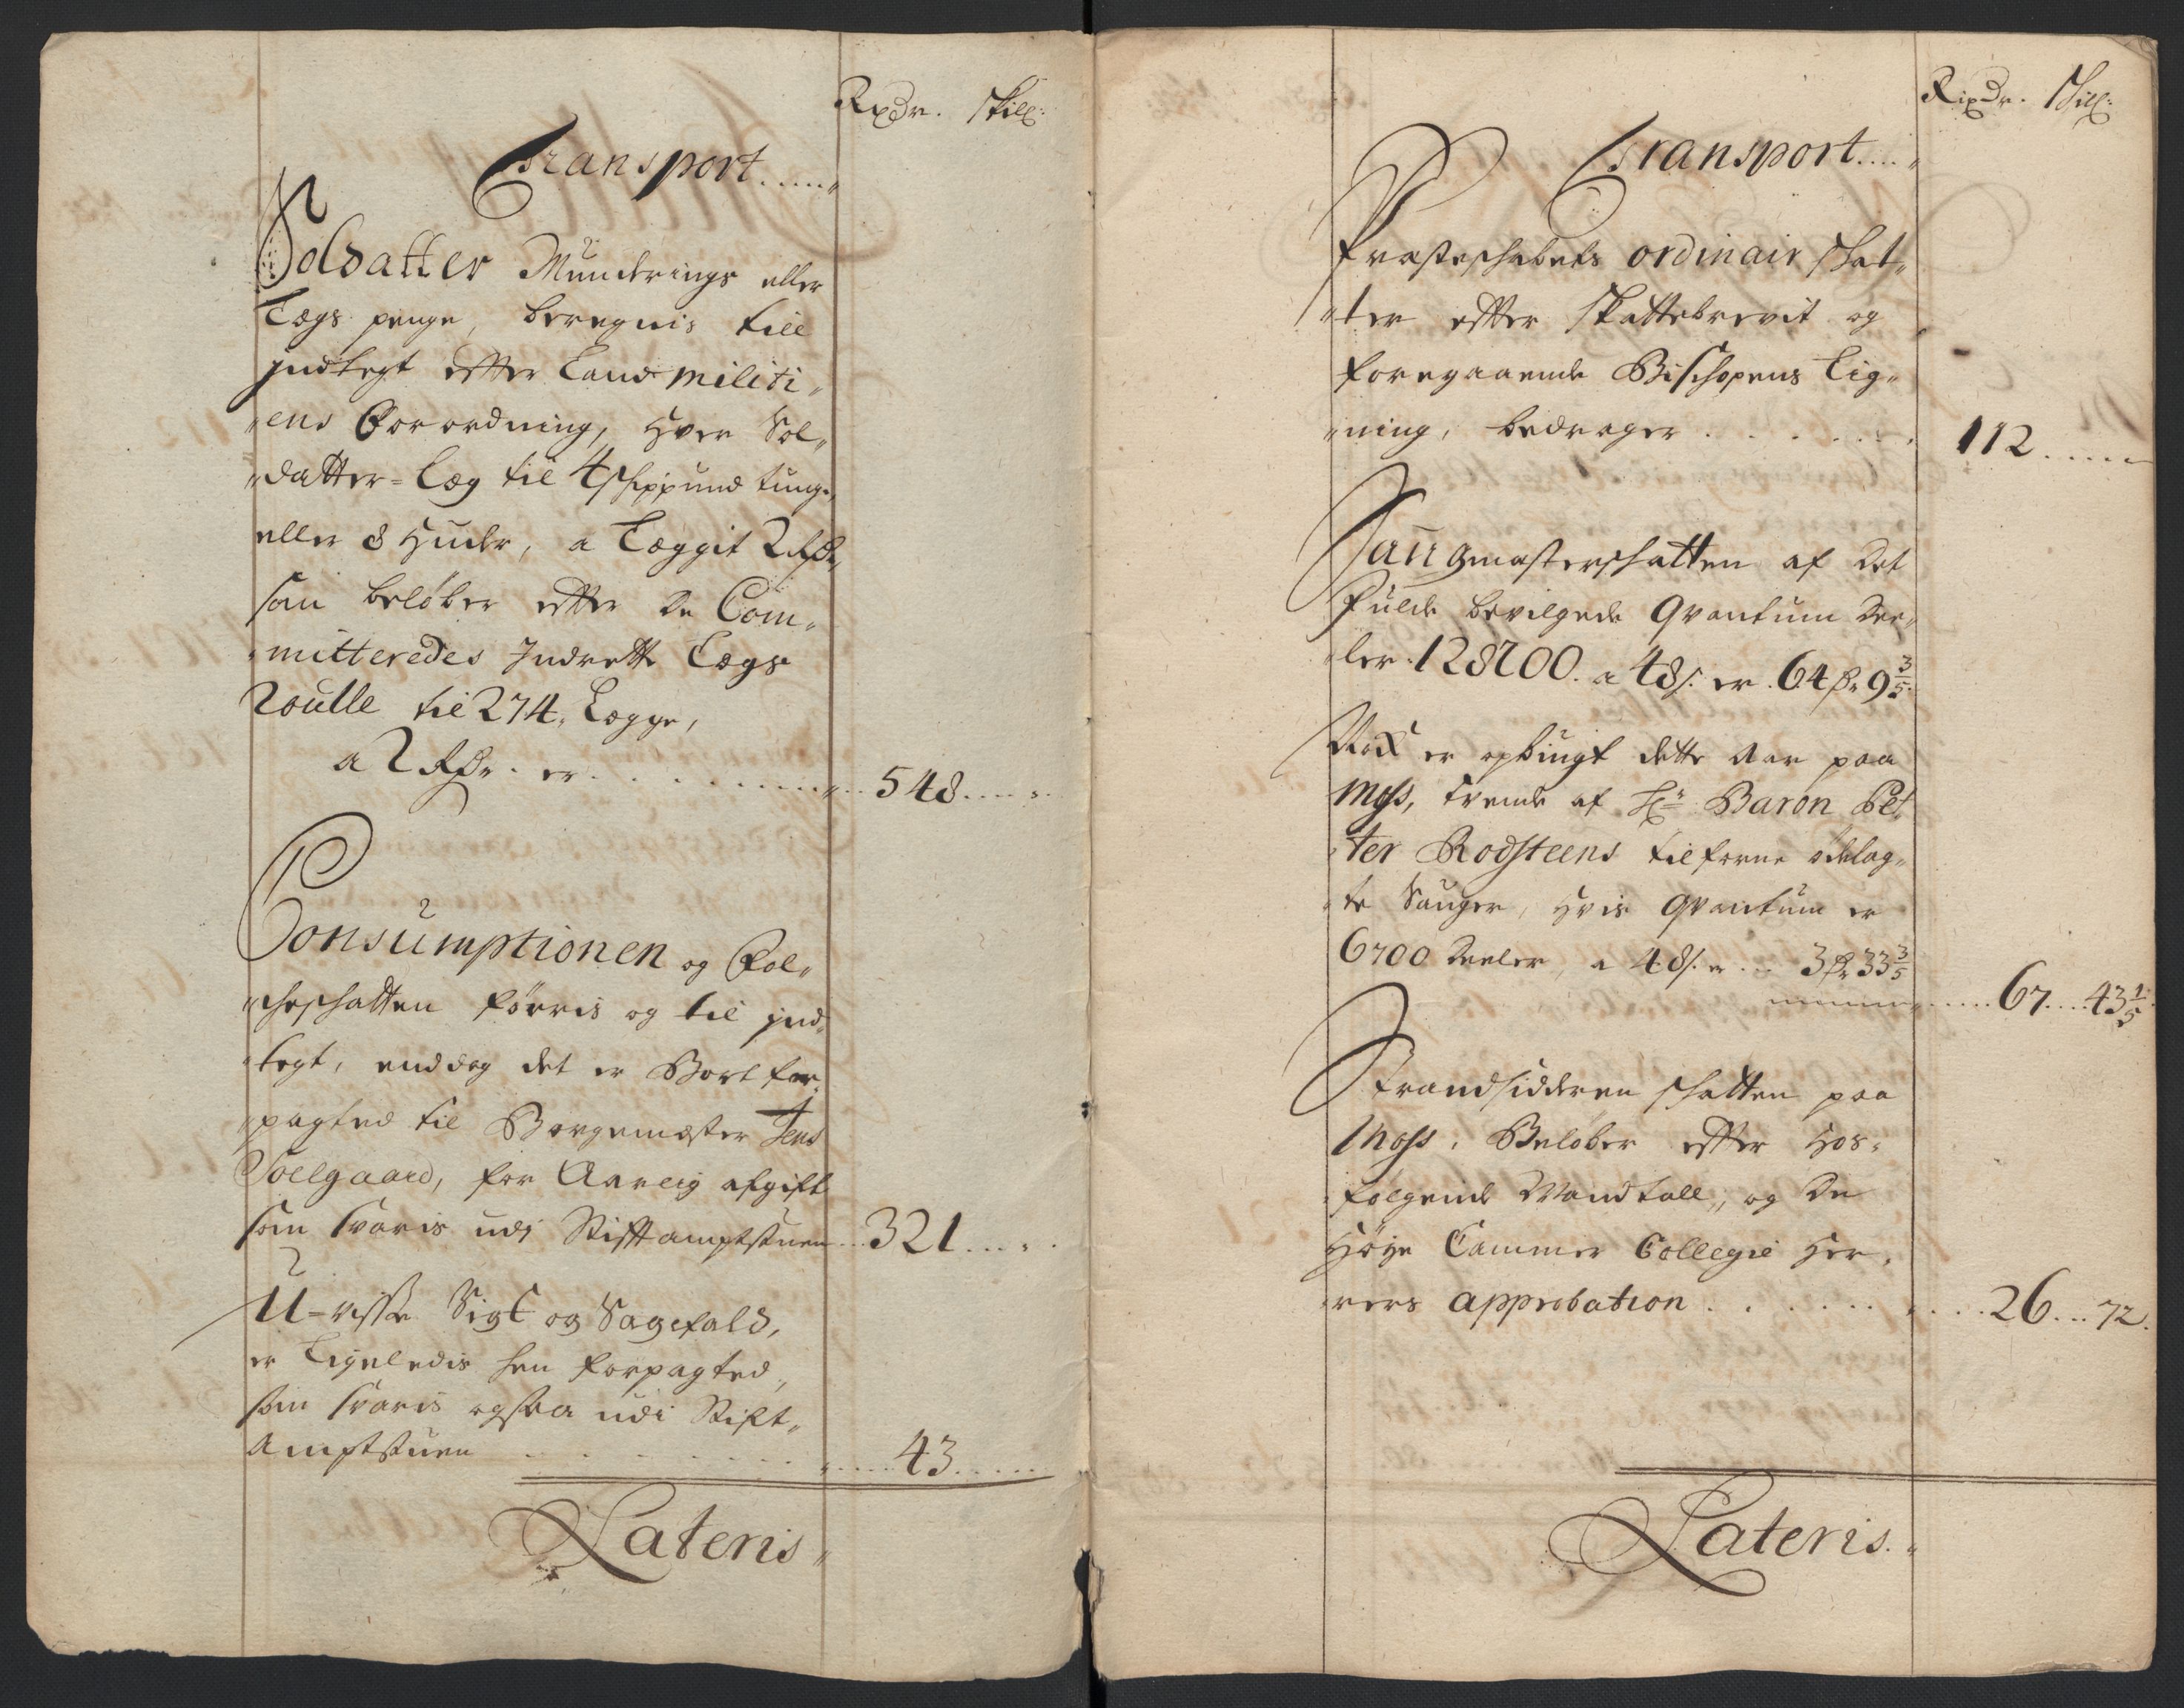 Rixdr. Skill:
Transport
Soldatter Munderings eller
Lægs penge, beregnis till
jndtegt efter Land militi
ens Forordning, hver Sol
datter=Læg til 4 skippund tunge
eller 8 Huder, a Lægget 2 Rdr
som beløber efter de Com
mitteredes Indrette Lægs
Roulle til 274. Lægge,
a 2 Rdr. er 548
Consumptionen og Fol
cheschatten førris og til jnd
tegt, enddog det er Bort for
pagted til Borgemæster Jens
Soelgaard, for Aarlig afgift
som svaris udj Stiftamptstuen 321
U-visse Sigt og Sagefald,
er Ligeledis hen forpagted,
som svaris ogsaa udi Stift
Amptstuen 43
Lateris
Rixdr. Skill:
Transport
Præsteschabets ordinair skat
ter efter Skattebrevit og
foregaaende Bischopens Lig
ning, bedrager 112
Saugmesterschatten af det
fulde bevilgede Qvantum Dee
ler. 128700. a 48s. er 64 Rdr 9 3/5
Nok er ophugt dette Aar paa
Moss, trende af Hr. Baron Pet
ter Rodsteens tilforne ødelag
te Sauger, hvis Qvantum er
6700 Deeler, a 48s. er 3 Rdr 33 3/5
67 43 1/5
Strandsidderen schatten paa
Moss, Beløber efter hos
følgende Mandtall, og De
Høye Cammer Collegie Her
rers approbation 26 72.
Lateris.